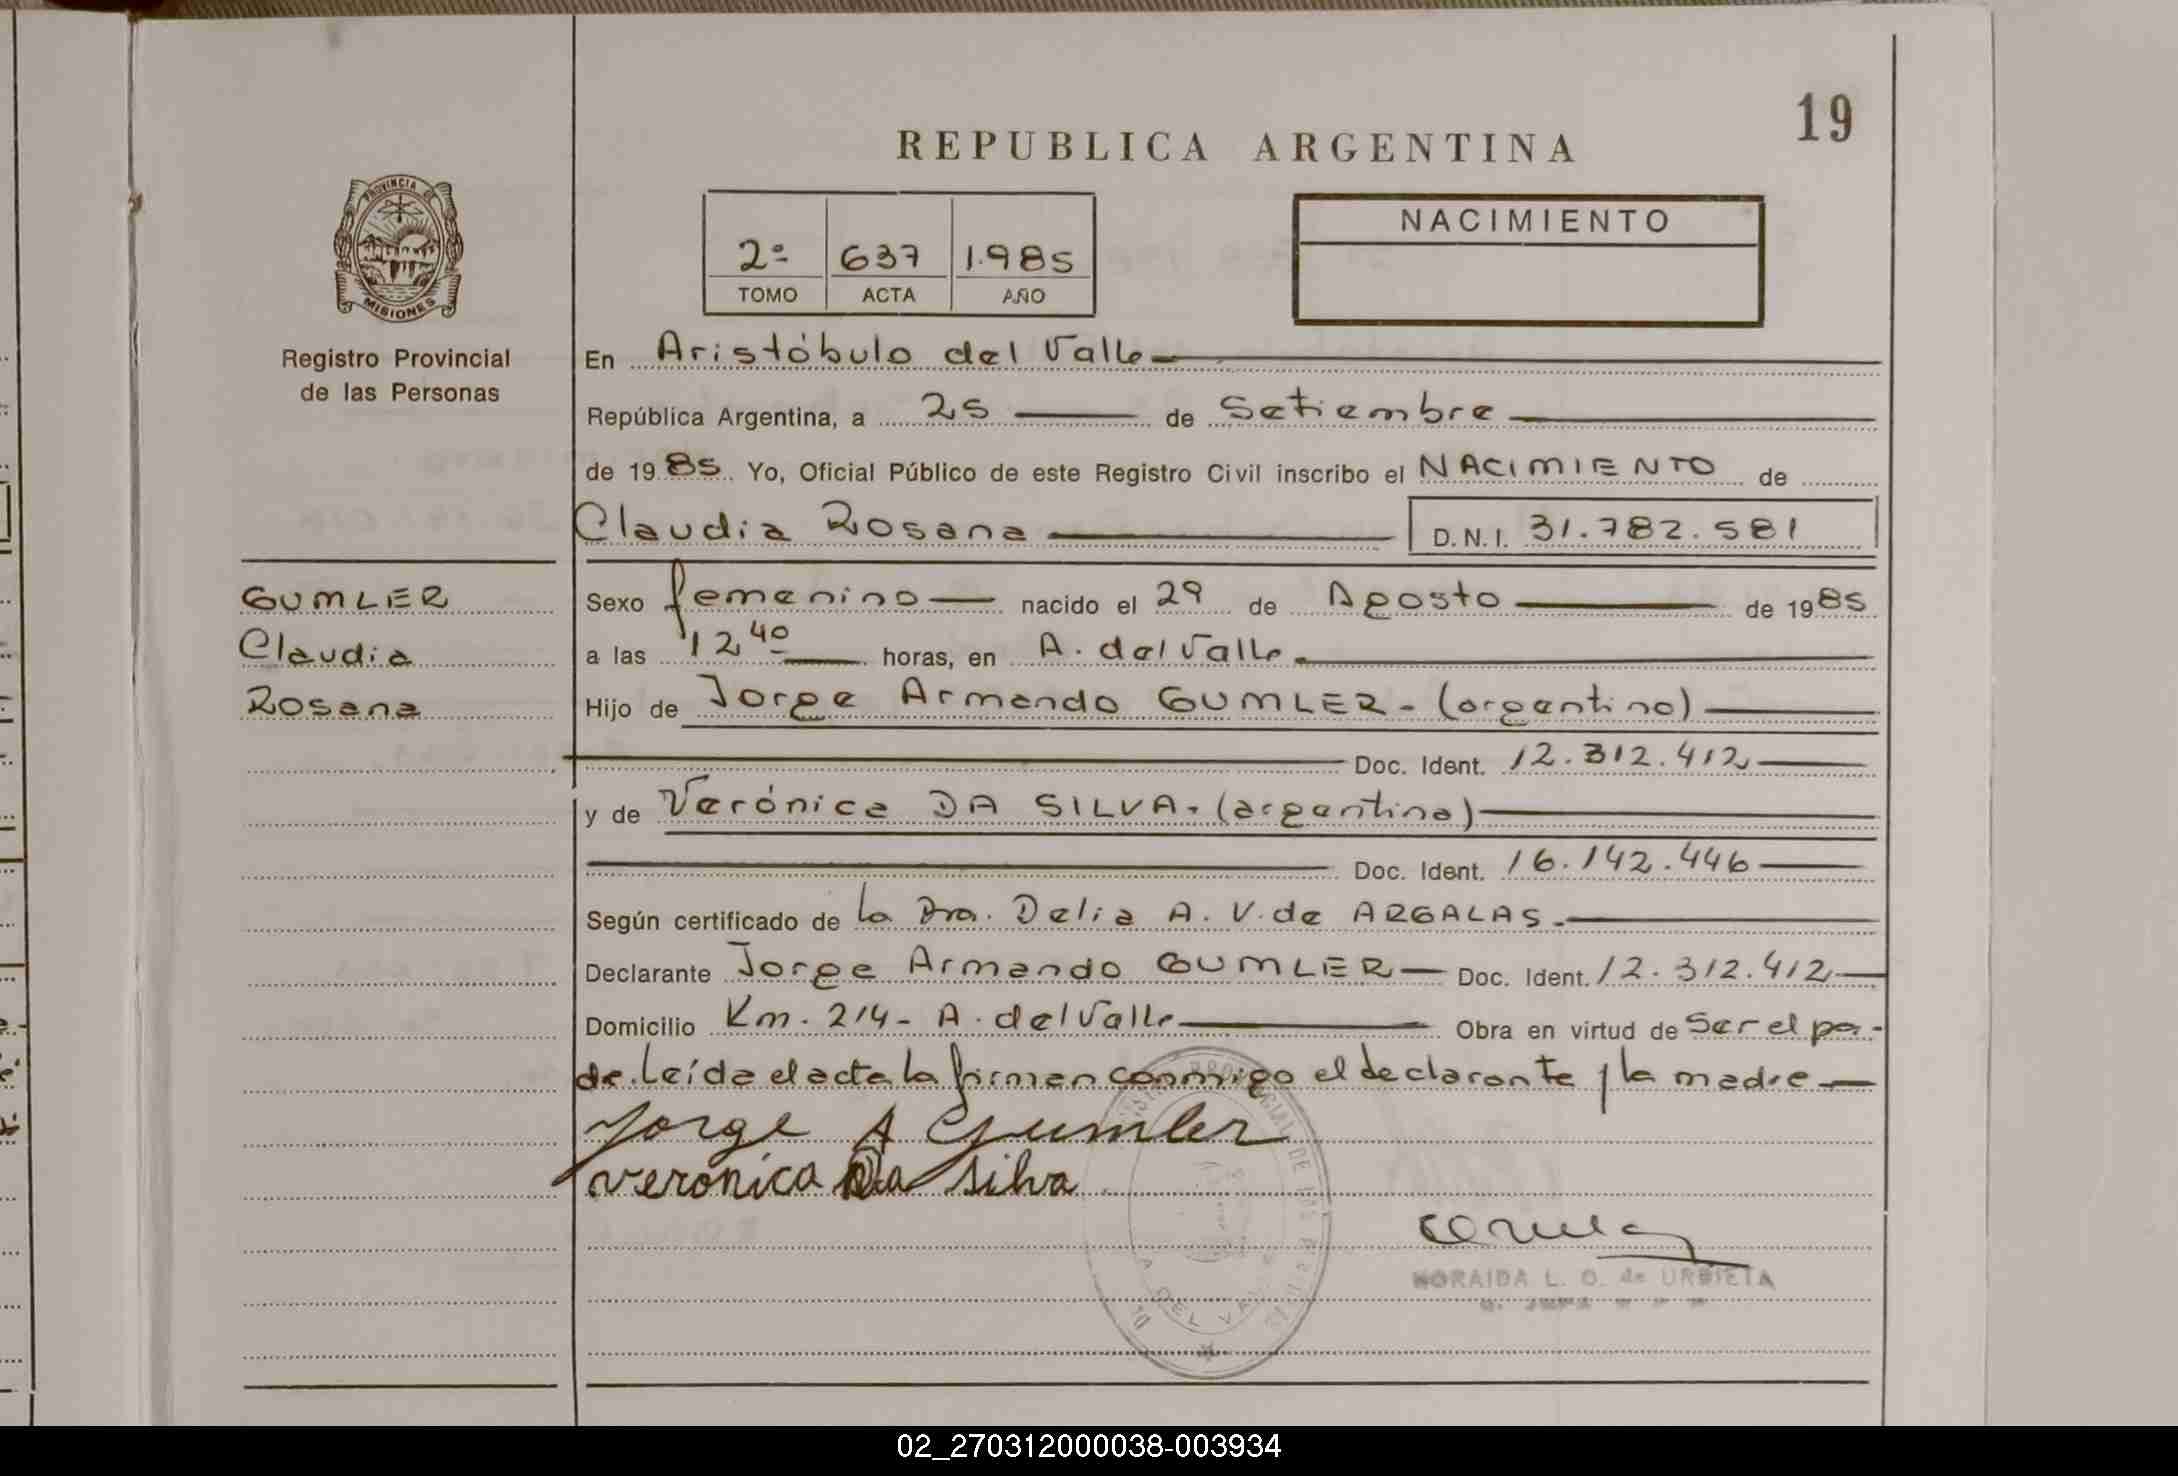 19
REPUBLICA ARGENTINA
PROVINCIA DE
MISIONES
Registro Provincial
de las Personas
2º 637 1.985
TOMO ACTA AÑO
NACIMIENTO
En Aristóbulo del Valle
República Argentina, a 25 de Setiembre
de 1985. Yo, Oficial Público de este Registro Civil inscribo el NACIMIENTO de
Claudia Rosana D.N.I. 31.782.581
GUMLER
Claudia
Rosana
Sexo femenino nacido el 29 de Agosto de 1985
a las 12 40 horas, en A. del Valle
Hijo de Jorge Armando GUMLER - (argentino)
Doc. Ident. 12.312.412
y de Verónica DA SILVA. (argentina)
Doc. Ident. 16.142.446
Según certificado de la Dra. Delia A. V. de ARGALAS.
Declarante Jorge Armando GUMLER Doc. Ident. 12.312.412
Domicilio Km. 214 - A. del Valle Obra en virtud de Ser el pa-
dre. Leída el acta la firman conmigo el declarante y la madre
Jorge A Gumler
veronica Da silva
NORAIDA L. O. de URBIETA
02_270312000038-003934